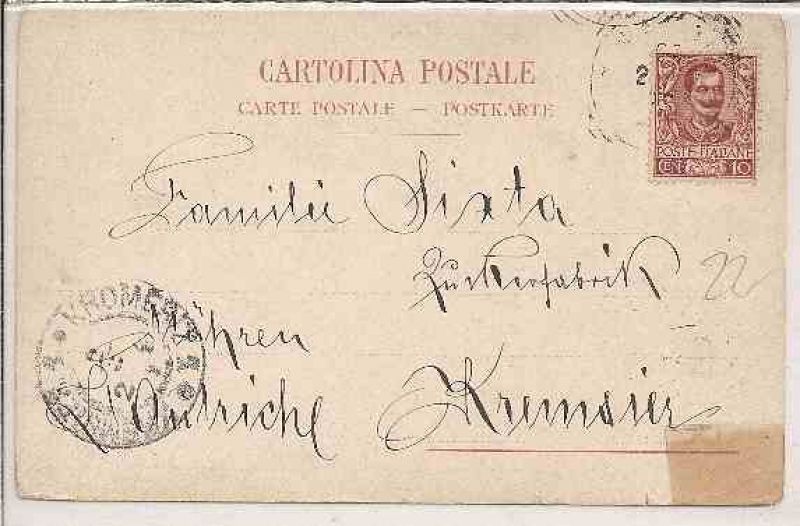 CARTOLINA POSTALE
CARTE POSTALE — POSTKARTE
2
POSTE ITALIANE
CENT. 10
Familie Sixta
Zuckerfabrik
22
Mähren
L'Autriche
Kremsier
KROMĚŘÍŽ